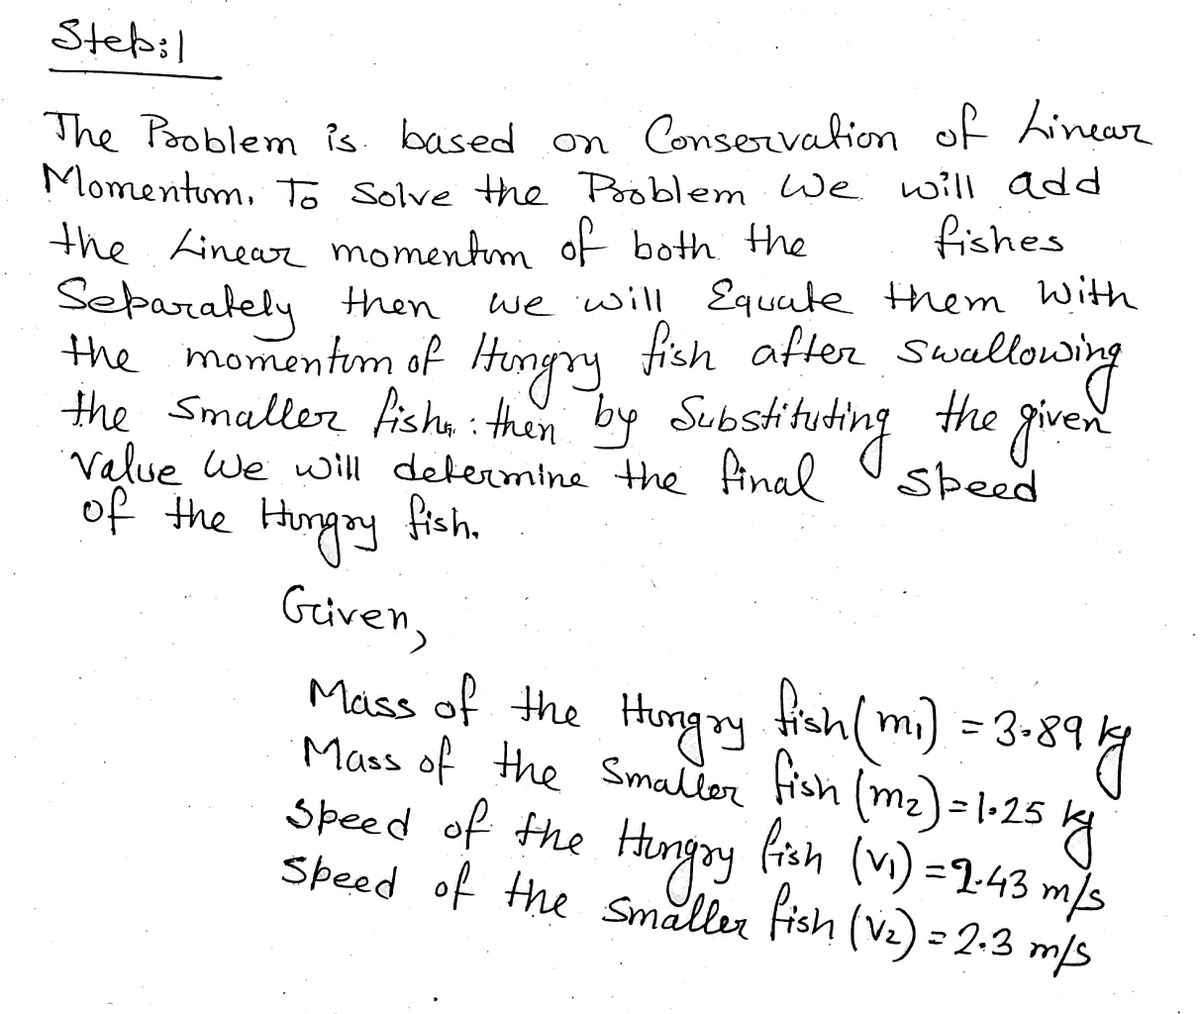 Step:1
The Problem is based on Conservation of Linear
Momentum. To Solve the Problem We will add
the Linear momentum of both the fishes
Separately then we will Equate them with
the momentum of Hungry fish after swallowing
the Smaller fish. then by Substituting the given
Value We will determine the final Speed
of the Hungry fish.
Given,
Mass of the Hungry fish (m₁) = 3.89 kg
Mass of the Smaller fish (m₂) = 1.25 kg
Speed of the Hungry fish (v₁) = 2.43 m/s
Speed of the smaller fish (v₂) = 2.3 m/s